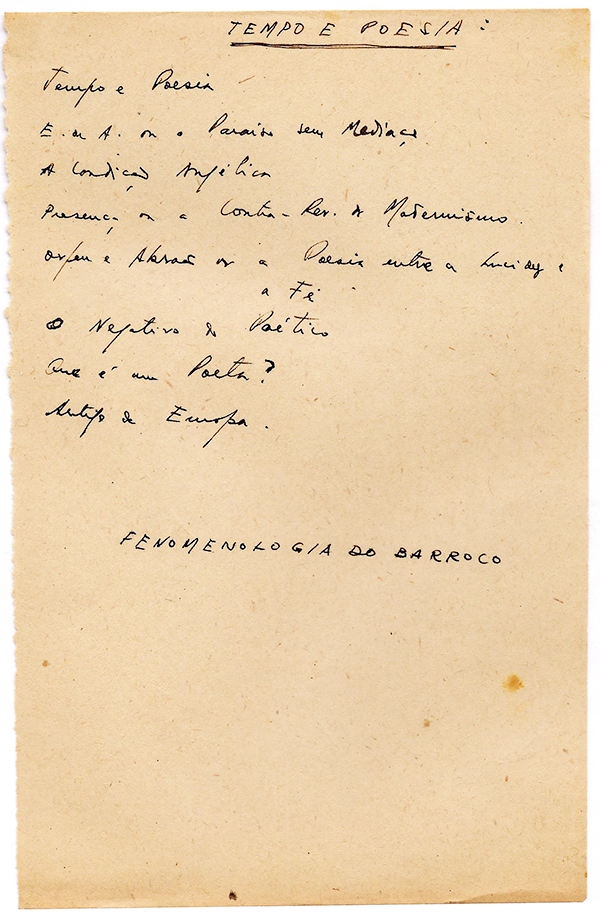 TEMPO E POESIA:
Tempo e Poesia
E. de A. ou o Paraíso sem Mediação
A Condição Angélica
Presença ou a Contra-Rev. do Modernismo.
Orfeu e Abraão ou a Poesia entre a Lucidez e
a Fé
O Negativo do Poético
Que é um Poeta?
de Europa.
FENOMENOLOGIA DO BARROCO